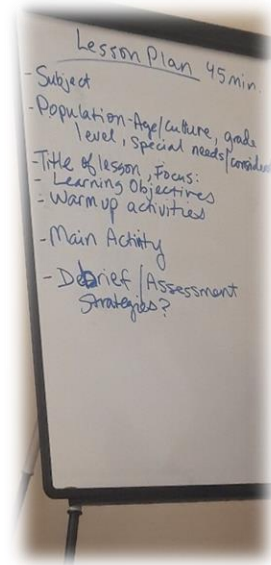 Lesson Plan 45 min.
- Subject
- Population - Age/culture, grade
level, special needs/
- Title of lesson, Focus:
- Learning Objectives
- Warm up activities
- Main Activity
- Debrief / Assessment
Strategies?